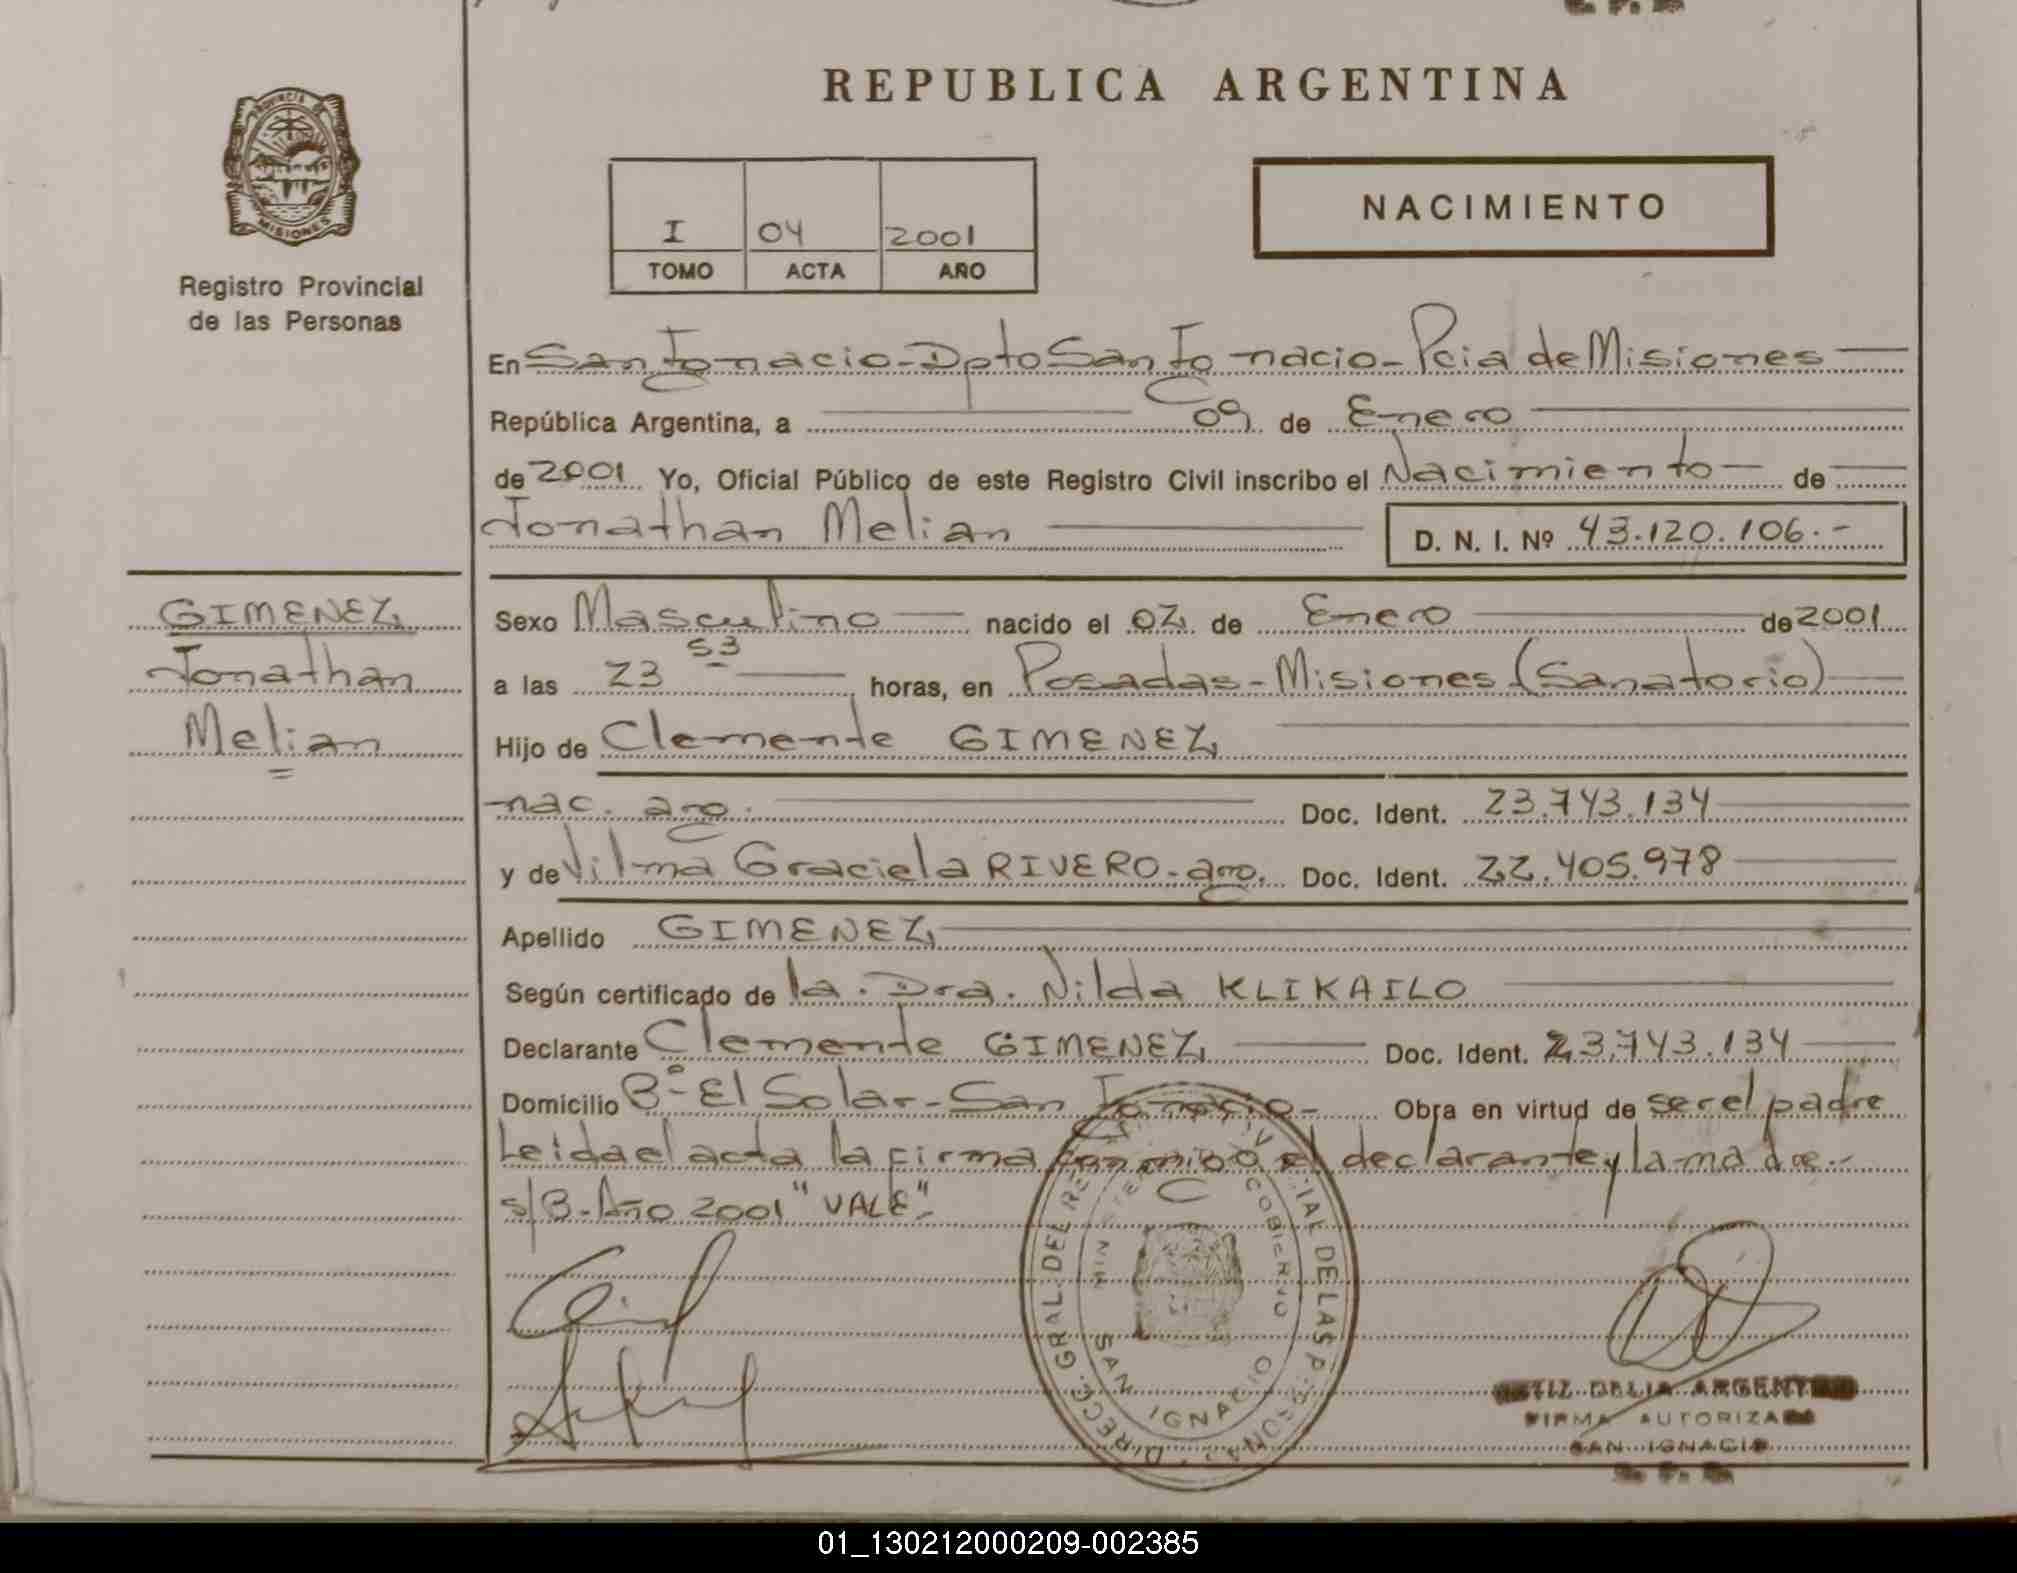 REPUBLICA ARGENTINA
PROVINCIA DE MISIONES
Registro Provincial
de las Personas
I 04 2001
TOMO ACTA AÑO
NACIMIENTO
En San Ignacio - Dpto San Ignacio - Pcia de Misiones
República Argentina, a 09 de Enero
de 2001 Yo, Oficial Público de este Registro Civil inscribo el Nacimiento de
Jonathan Melian D. N. I. Nº 43.120.106.-
GIMENEZ
Jonathan
Melian
Sexo Masculino nacido el 02 de Enero de 2001
a las 23 53 horas, en Posadas - Misiones (Sanatorio)
Hijo de Clemente GIMENEZ
nac. arg. Doc. Ident. 23.743.134
y de Vilma Graciela RIVERO - arg. Doc. Ident. 22.405.978
Apellido GIMENEZ
Según certificado de la Dra. Nilda KLIKAILO
Declarante Clemente GIMENEZ Doc. Ident. 23.743.134
Domicilio Bº El Solar - San Ignacio - Obra en virtud de ser el padre
Leida el acta la firma conmigo el declarante y la madre.-
s/B. Año 2001 "VALE".-
DIRECC. GRAL. DEL REG. PROVINCIAL DE LAS PERSONAS
MINISTERIO GOBIERNO
SAN IGNACIO
DELIA ARGENT
FIRMA AUTORIZADA
SAN IGNACIO
01_130212000209-002385